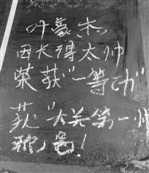 叶豪杰
因长得太帅
荣获"一等功"
获"大关第一帅
称号!